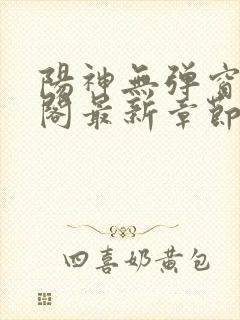 陽神無彈窗
閣最新章節
四喜奶黃包